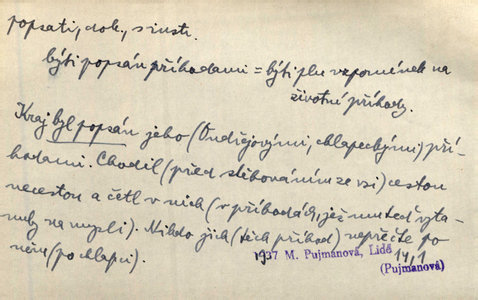 popsati, dok., s instr.
býti popsán příhodami = býti pln vzpomínek na
životní příhody.
Kraj byl popsán jeho (Ondřejovými, chlapeckými) pří-
hodami. Chodil (před stěhováním ze vsi) cestou
necestou a četl v nich (v příhodách, jež mu teď vyta-
nuly na mysli). Nikdo jich (těch příhod) nepřečte po
něm (po chlapci).
1937 M. Pujmanová, Lidé
14,1
(Pujmanová)